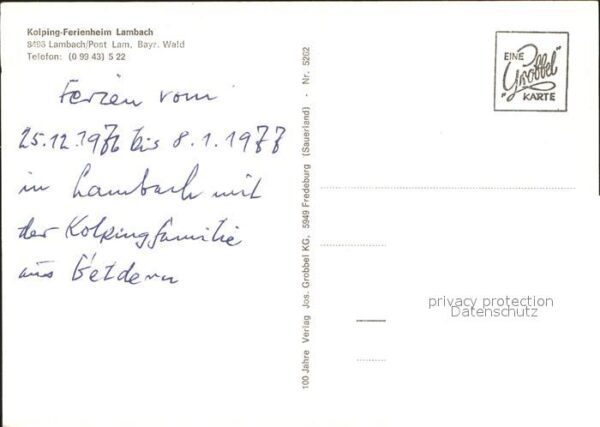 Kolping-Ferienheim Lambach
8496 Lambach/Post Lam, Bayr. Wald
Telefon: (0 99 43) 5 22
Ferien vom
25.12.1976 bis 8.1.1977
in Lambach mit
der Kolpingfamilie
aus Geldern
100 Jahre Verlag Jos. Grobbel KG, 5949 Fredeburg (Sauerland) - Nr. 5262
EINE
"Grobbel"
KARTE
privacy protection
Datenschutz